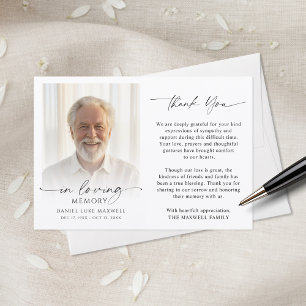 in loving
MEMORY
DANIEL LUKE MAXWELL
DEC 17, 19XX - OCT 15, 20XX
Thank You
We are deeply grateful for your kind
expressions of sympathy and
support during this difficult time.
Your love, prayers and thoughtful
gestures have brought comfort
to our hearts.
Though our loss is great, the
kindness of friends and family has
been a true blessing. Thank you for
sharing in our sorrow and honoring
their memory with us.
With heartfelt appreciation,
THE MAXWELL FAMILY